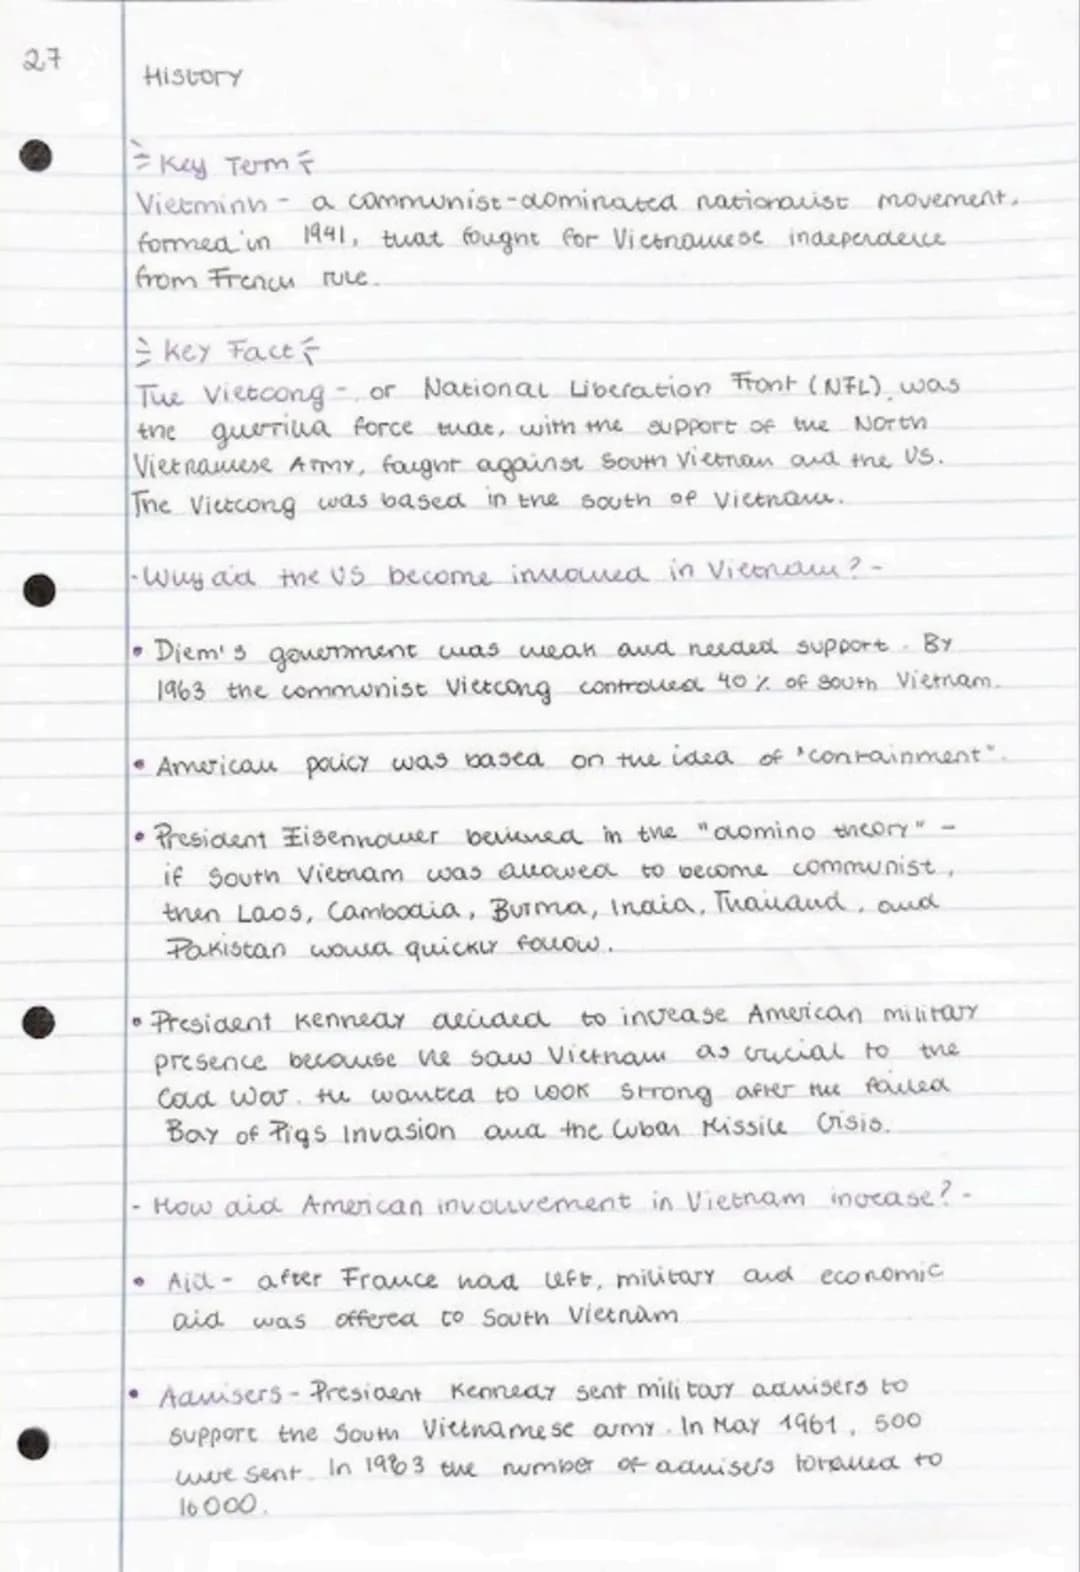 27
History
Key Term
Vietminh - a communist-dominated nationalist movement,
formed in 1941, that fought for Vietnamese independence
from French rule.
Key Fact
The Vietcong - or National Liberation Front (NFL), was
the guerrilla force that, with the support of the North
Vietnamese Army, fought against South Vietnam and the US.
The Vietcong was based in the south of Vietnam.
- Why did the US become involved in Vietnam? -
• Diem's government was weak and needed support. By
1963 the communist Vietcong controlled 40% of South Vietnam.
• American policy was based on the idea of 'containment".
• President Eisenhower believed in the "domino theory" -
if South Vietnam was allowed to become communist,
then Laos, Cambodia, Burma, India, Thailand, and
Pakistan would quickly follow.
• President Kennedy decided to increase American military
presence because he saw Vietnam as crucial to the
Cold War. He wanted to look strong after the failed
Bay of Pigs Invasion and the Cuban Missile Crisis.
- How did American involvement in Vietnam increase? -
• Aid - after France had left, military and economic
aid was offered to South Vietnam
• Advisers - President Kennedy sent military advisers to
support the South Vietnamese army. In May 1961, 500
were sent. In 1963 the number of advisers totalled to
16000.